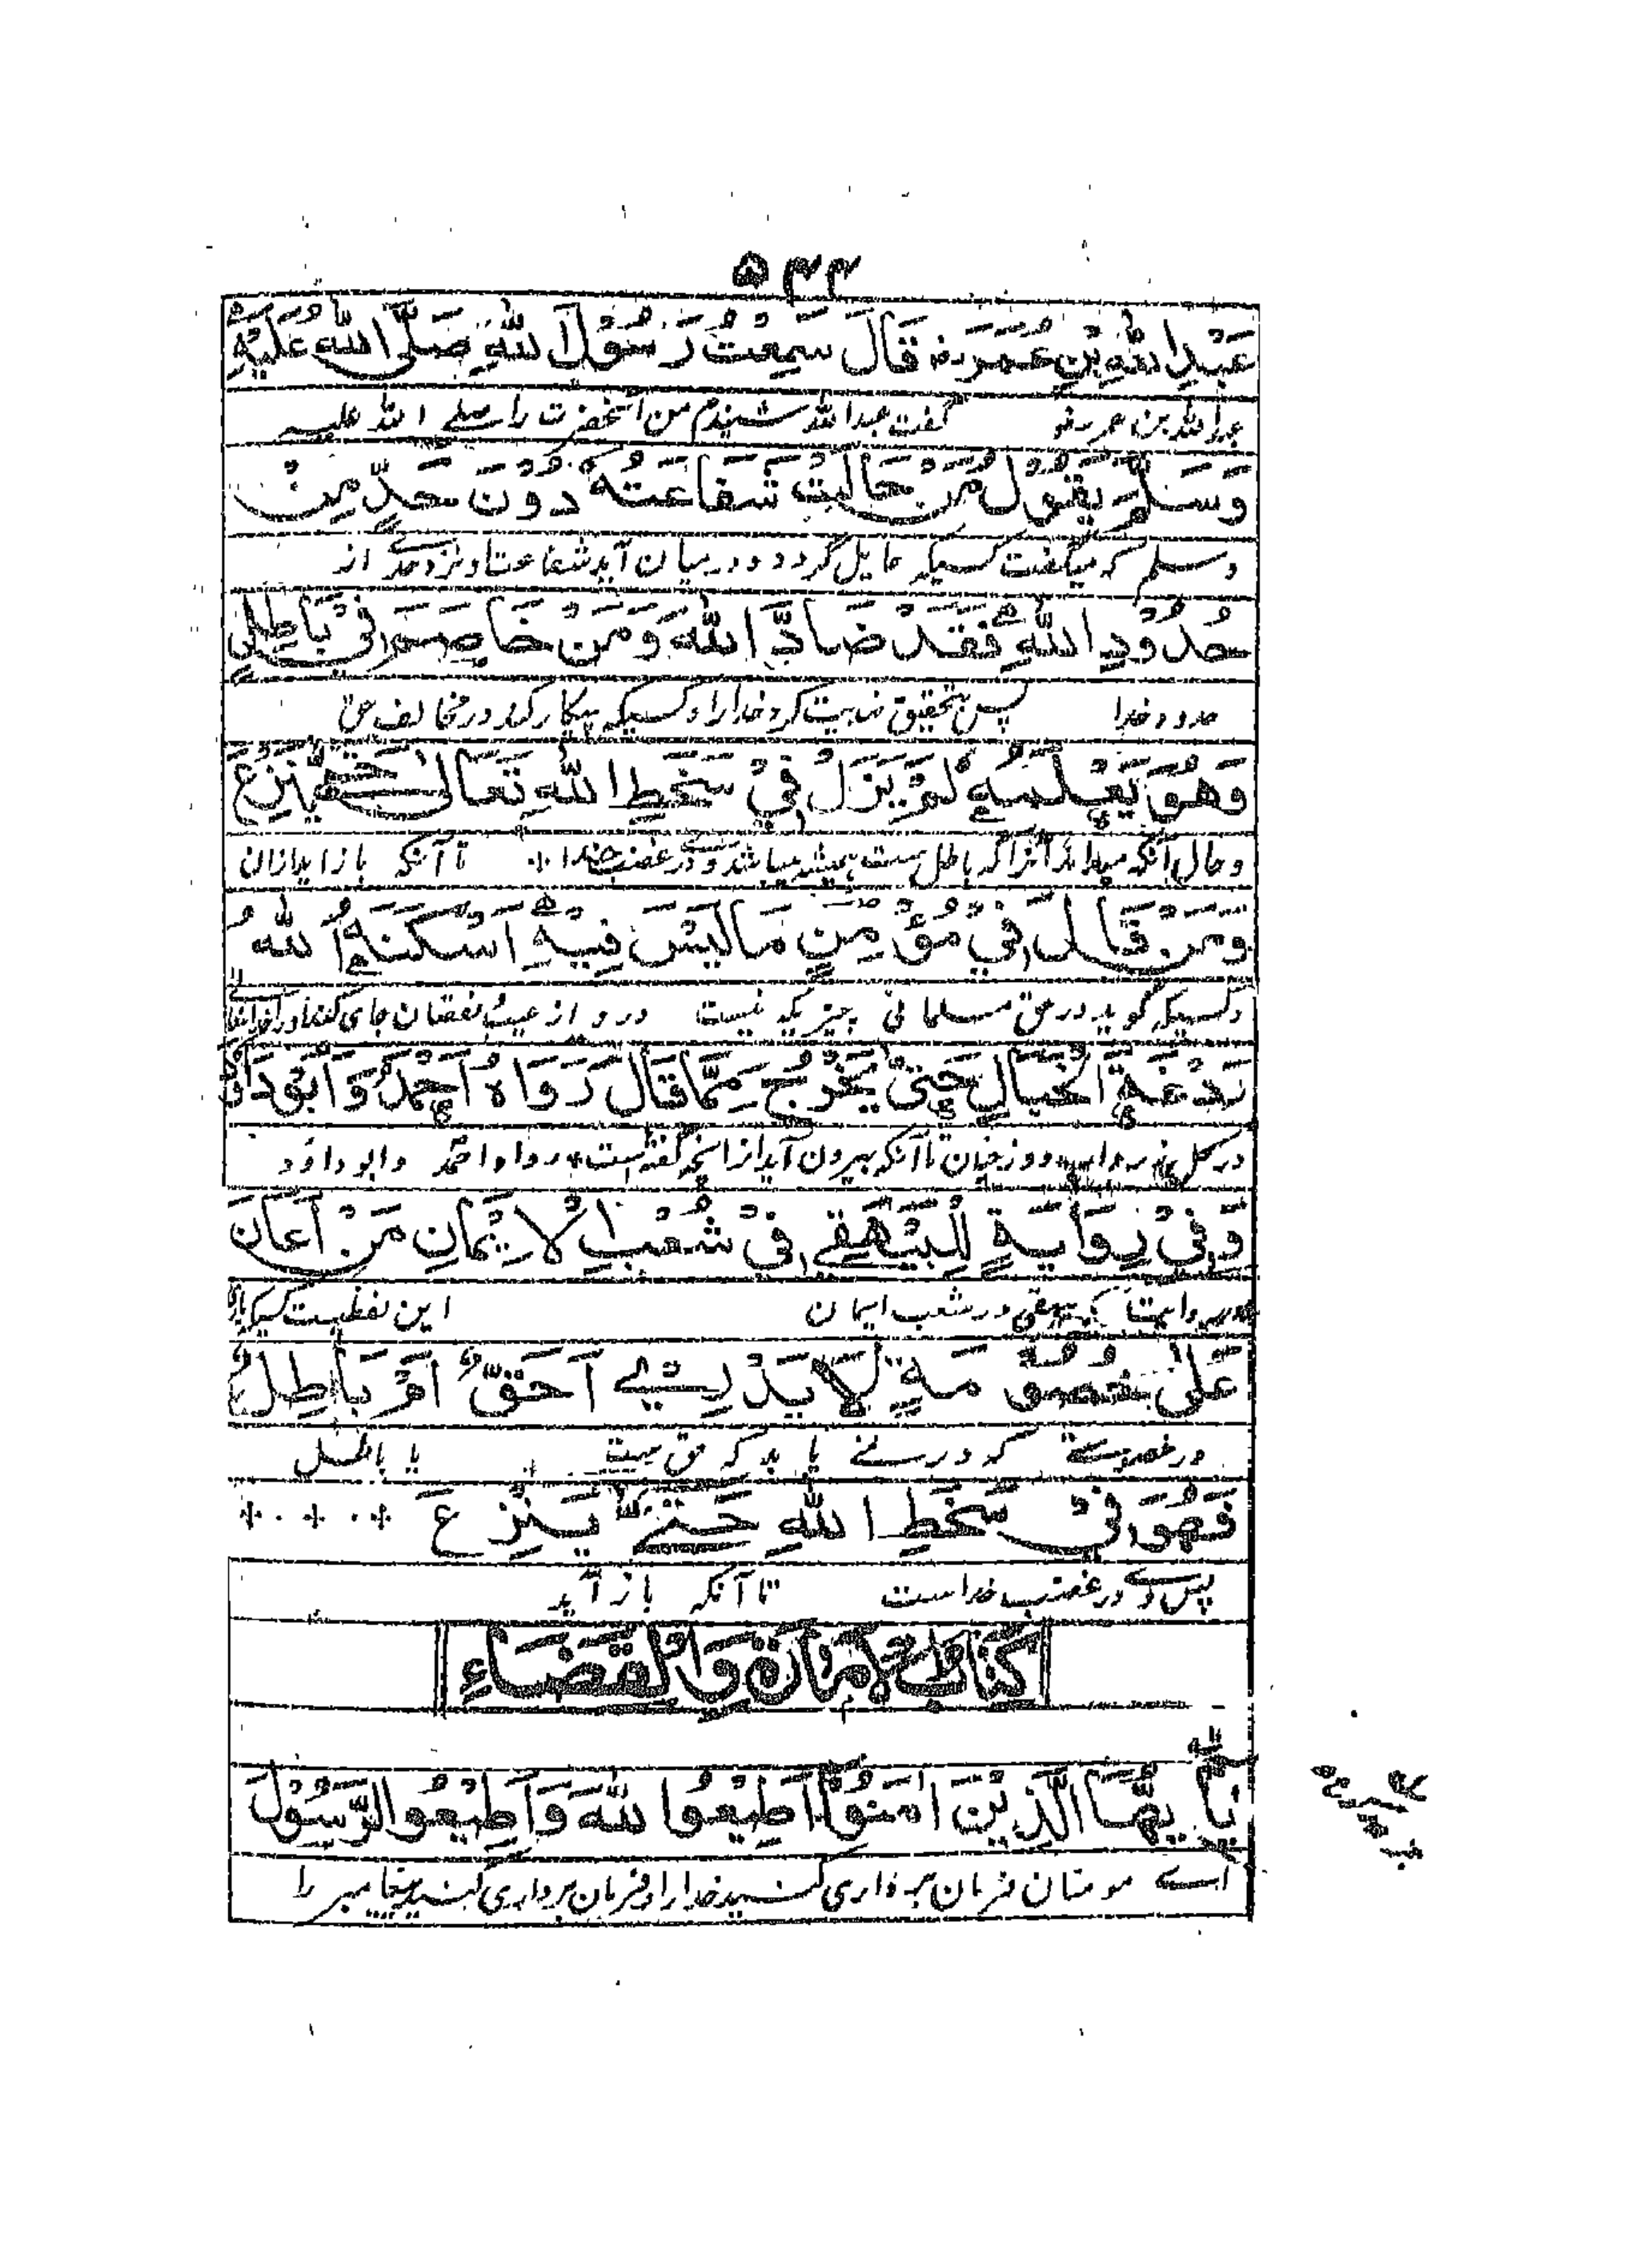 ۵۴۴
عَبْدِ اللهِ بْنِ عُمَرَ رض قَالَ سَمِعْتُ رَسُوْلَ اللهِ صَلَّى اللهُ عَلَيْهِ
عبدالله بن عمر رض گفت عبدالله شنیدم من آنحضرت را صلے الله علیه
وَسَلَّمَ يَقُوْلُ مَنْ حَالَتْ شَفَاعَتُهٗ دُوْنَ حَدٍّ مِنْ
وسلم که میگفت کسیکه حایل گردد و درمیان آید شفاعت او نزد حدے از
حُدُوْدِ اللهِ فَقَدْ ضَادَّ اللهَ وَمَنْ خَاصَمَ فِیْ بَاطِلٍ
حدود خدا پس بتحقیق ضدیت کرد خدا را و کسیکه پیکار کند در مخالف حق
وَهُوَ يَعْلَمُهٗ لَمْ يَزَلْ فِيْ سَخَطِ اللهِ تَعَالٰی حَتّٰی يَنْزِعَ
و حال آنکه میداند آنرا که باطل هست همیشه میباشد وے در غضب خدا تا آنکه باز آید ازان
وَمَنْ قَالَ فِيْ مُؤْمِنٍ مَا لَيْسَ فِيْهِ اَسْكَنَهُ اللهُ
و کسیکه گوید در حق مسلمانی چیزیکه نیست در و از عیب و نقصان جای کند او را خدا تعالے
رَدْغَةَ الْخَبَالِ حَتّٰى يَخْرُجَ مِمَّا قَالَ رَوَاهُ اَحْمَدُ وَاَبُوْ دَاوٗدَ
در گل دوزخیان تا آنکه بیرون آید از آنچه گفته است رواه احمد و ابو داود
وَفِیْ رِوَايَةٍ لِلْبَيْهَقِيِّ فِیْ شُعَبِ الْاِيْمَانِ مَنْ اَعَانَ
در روایت بیهقی در شعب ایمان این لفظیست کسیکه
عَلٰى خُصُوْمَةٍ لَا يَدْرِيْ اَحَقٌّ اَمْ بَاطِلٌ
در خصومتے که در نمے یابد که حق هست یا باطل
فَهُوَ فِیْ سَخَطِ اللهِ حَتّٰى يَنْزِعَ
پس وے در غضب خداست تا آنکه باز آید
كِتَابُ الْاِمَارَةِ وَالْقَضَاءِ
يٰاَيُّهَا الَّذِيْنَ اٰمَنُوْا اَطِيْعُوا اللهَ وَاَطِيْعُوا الرَّسُوْلَ
اے مومنان فرمان برداری کنید خدا را و فرمان برداری کنید پیغامبر را